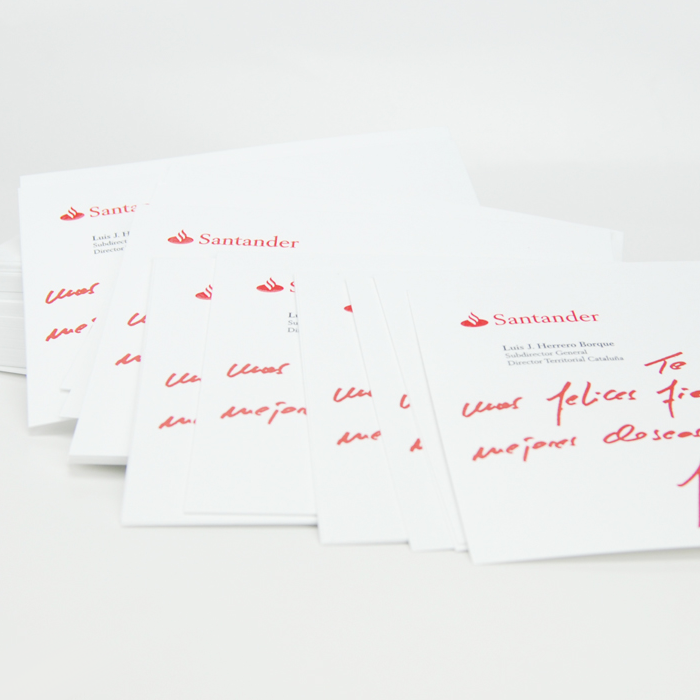 Santa
Luis J. H
Subdirect
Director
unas
me
Santander
unas
mejor
Santander
Luis J. Herrero Borque
Subdirector General
Director Territorial Cataluña
Te
unas felices fie
mejores deseos